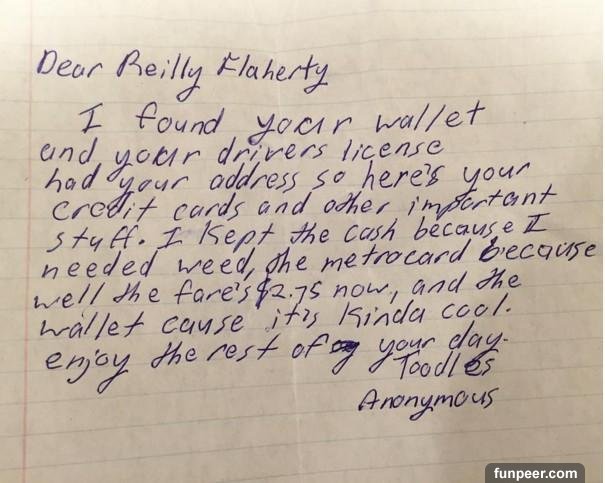 Dear Reilly Flaherty
I found your wallet
and your drivers license
had your address so here's your
credit cards and other important
stuff. I kept the cash because I
needed weed, the metrocard because
well the fare's $2.75 now, and the
wallet cause it's kinda cool.
enjoy the rest of your day.
Toodles
Anonymous
funpeer.com